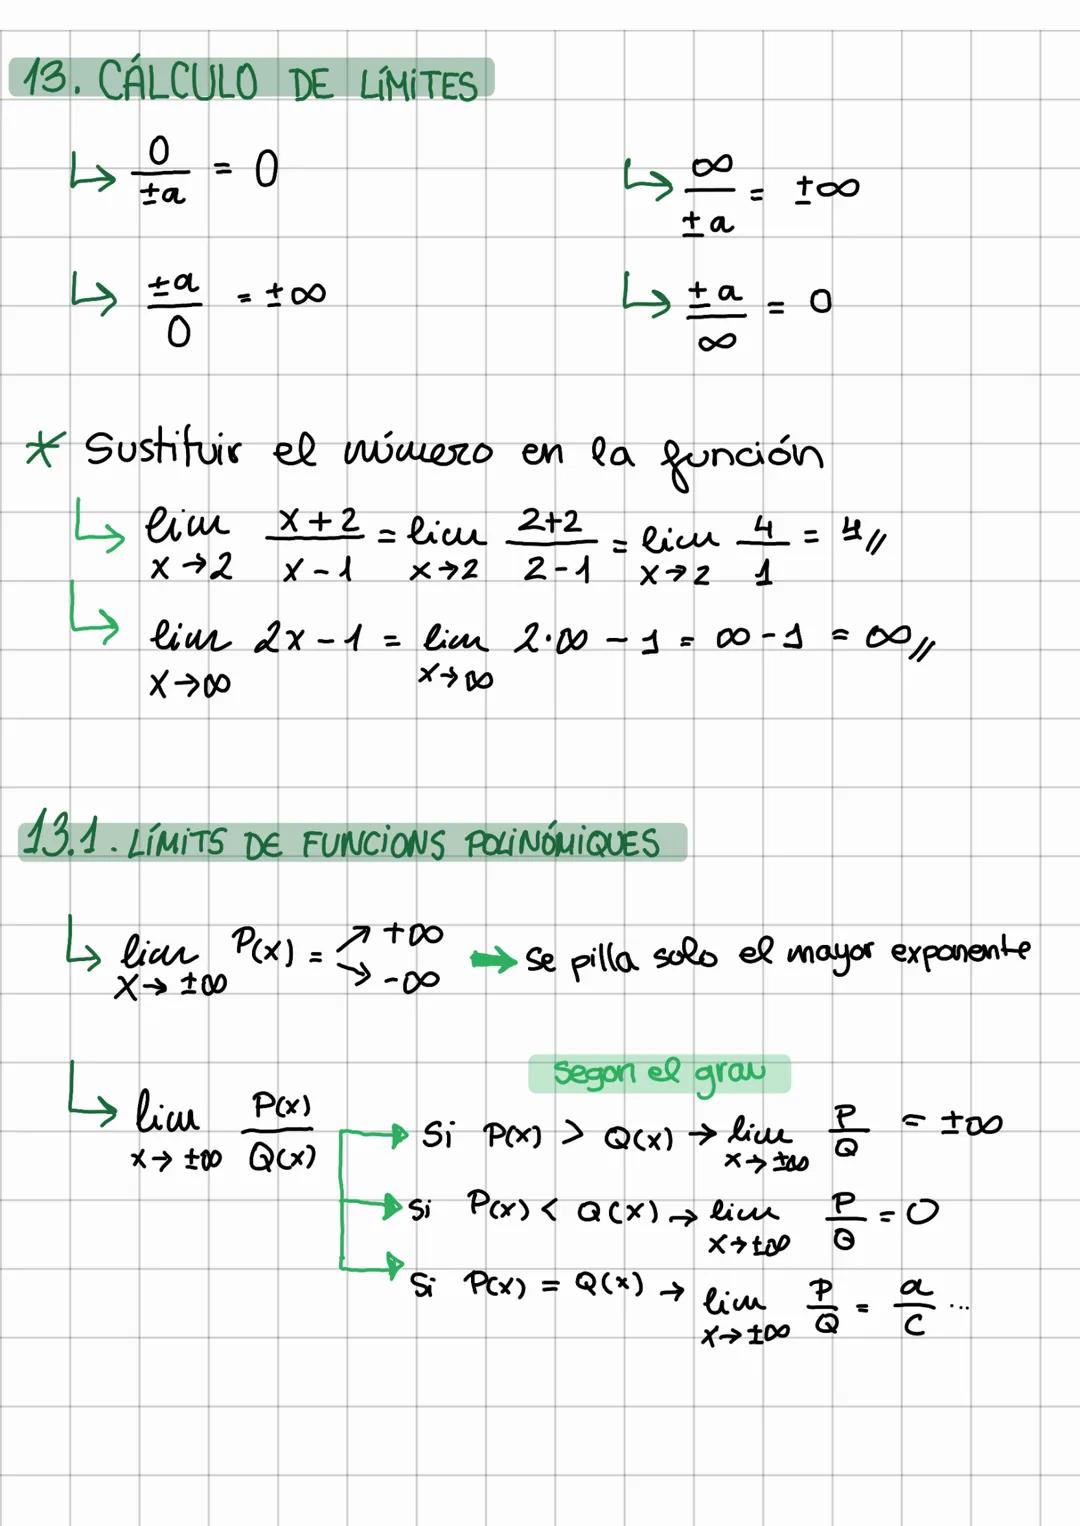 13. CÁLCULO DE LÍMITES
↳ 0/±a = 0
↳ ∞/±a = ±∞
↳ ±a/0 = ±∞
↳ ±a/∞ = 0
* Sustituir el número en la función
↳ lim x→2 x+2/x-1 = lim x→2 2+2/2-1 = lim x→2 4/1 = 4//
↳ lim x→∞ 2x-1 = lim x→∞ 2·∞ - 1 = ∞-1 = ∞//
13.1. LÍMITS DE FUNCIONS POLINÓMIQUES
↳ lim x→±∞ P(x) = ↗ +∞ ↘ -∞ → se pilla solo el mayor exponente
segon el grau
↳ lim x→±∞ P(x)/Q(x)
→ Si P(x) > Q(x) → lim x→±∞ P/Q = ±∞
→ Si P(x) < Q(x) → lim x→±∞ P/Q = 0
→ Si P(x) = Q(x) → lim x→±∞ P/Q = a/c ...